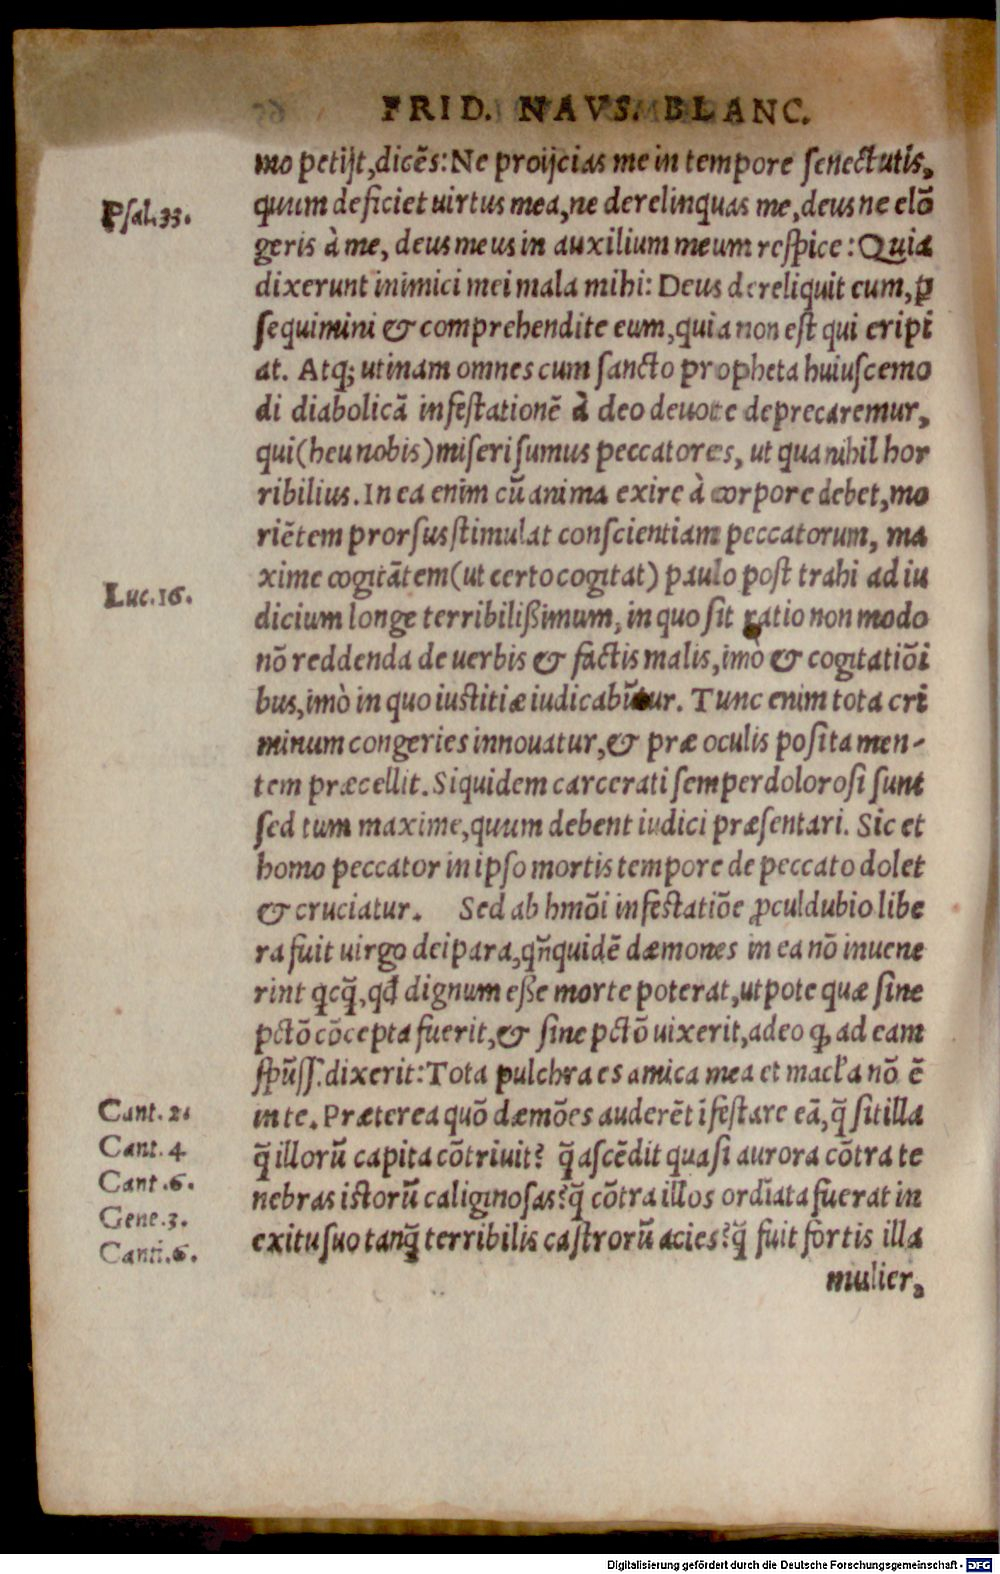 FRID. NAVS. BLANC.
mo petijt, dicẽs: Ne proijcias me in tempore senectutis,
Psal.33.
quum deficiet uirtus mea, ne derelinquas me, deus ne elõ
geris à me, deus meus in auxilium meum respice: Quia
dixerunt inimici mei mala mihi: Deus dereliquit eum, ꝑ
sequimini & comprehendite eum, quia non est qui eripi
at. Atq; utinam omnes cum sancto propheta huiuscemo
di diabolicã infestationẽ à deo deuote deprecaremur,
qui (heu nobis) miseri sumus peccatores, ut qua nihil hor
ribilius. In ea enim cũ anima exire à corpore debet, mo
riẽtem prorsus stimulat conscientiam peccatorum, ma
xime cogitãtem (ut certo cogitat) paulo post trahi ad iu
Luc.16.
dicium longe terribilißimum, in quo sit ratio non modo
nõ reddenda de uerbis & factis malis, imò & cogitatiõi
bus, imò in quo iustitiæ iudicabũtur. Tunc enim tota cri
minum congeries innouatur, & præ oculis posita men-
tem præcellit. Siquidem carcerati semper dolorosi sunt
sed tum maxime, quum debent iudici præsentari. Sic et
homo peccator in ipso mortis tempore de peccato dolet
& cruciatur. Sed ab hmõi infestatiõe ꝓculdubio libe
ra fuit uirgo deipara, qñquidẽ dæmones in ea nõ inuene
rint qcq̃, qđ dignum eße morte poterat, utpote quæ sine
pctõ cõcepta fuerit, & sine pctõ uixerit, adeo ꝙ ad eam
spũſſ. dixerit: Tota pulchra es amica mea et macl'a nõ ẽ
Cant. 2.
in te. Præterea quõ dæmões auderẽt ĩfestare eã, q̃ sit illa
Cant. 4
q̃ illorũ capita cõtriuit? q̃ ascẽdit quasi aurora cõtra te
Cant.6.
nebras istorũ caliginosas? q̃ cõtra illos ordĩata fuerat in
Gene.3.
exitu suo tanq̃ terribilis castrorũ acies? q̃ fuit fortis illa
Canti.6.
mulier,
Digitalisierung gefördert durch die Deutsche Forschungsgemeinschaft - DFG